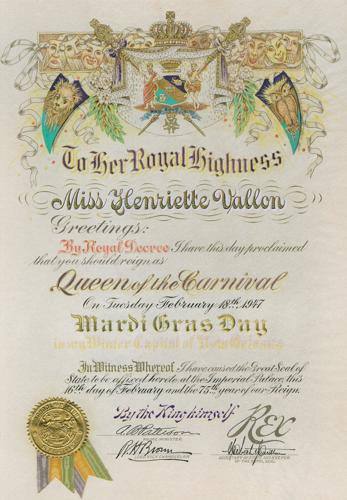 To Her Royal Highness
Miss Henriette Vallon
Greetings:
By Royal Decree I have this day proclaimed
that you should reign as
Queen of the Carnival
On Tuesday February 18th, 1947
Mardi Gras Day
in my Winter Capital of New Orleans
In Witness Whereof I have caused the Great Seal of
State to be affixed hereto at the Imperial Palace, this
16th day of February and the 75th year of our Reign.
By the King himself
REX
PRIME MINISTER